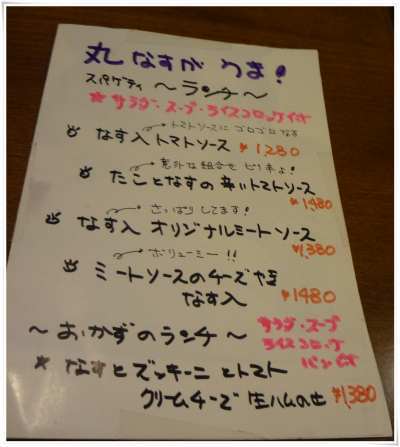 丸なすが うま！
スパゲティ ～ランチ～
★サラダ・スープ・ライスコロッケ付
トマトソースに ゴロゴロなす
なす入トマトソース ¥1280
意外な組合せ ピリ辛よ！
たことなすの辛いトマトソース
¥1,480
さっぱりしてます！
なす入 オリジナルミートソース
¥1,380
ボリューミー!!
ミートソースのチーズ焼
なす入 ¥1480
～おかずのランチ～ サラダ・スープ
ライスコロッケ
パン付
★なすとズッキーニとトマト
クリームチーズ 生ハムの ¥1,380